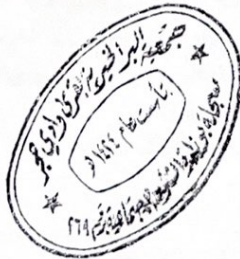 جمعية البر الخيرية بقرى وادي حجر
تأسست عام ١٤٢٤هـ
مسجلة بوزارة الشئون الاجتماعية برقم ٢٦٩